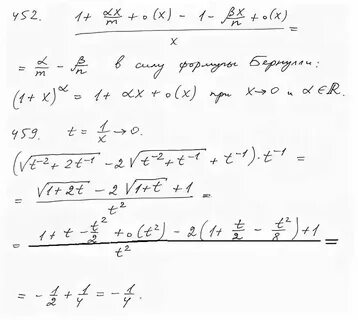 452. (1 + αx/m + o(x) - 1 - βx/n + o(x)) / x =
= α/m - β/n в силу формулы Бернулли:
(1+x)^α = 1 + αx + o(x) при x→0 и α∈ℝ.
459. t = 1/x → 0.
(√(t^-2 + 2t^-1) - 2√(t^-2 + t^-1) + t^-1) · t^-1 =
= (√(1+2t) - 2√(1+t) + 1) / t² =
= (1 + t - t²/2 + o(t²) - 2(1 + t/2 - t²/8) + 1) / t² =
= - 1/2 + 1/4 = - 1/4.